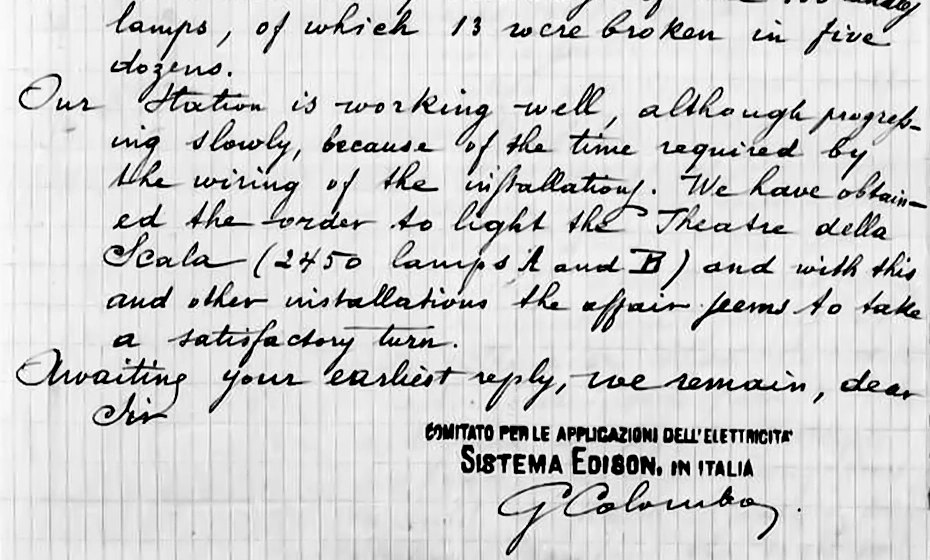 lamps, of which 13 were broken in five
dozens.
Our Station is working well, although progress-
ing slowly, because of the time required by
the wiring of the installations. We have obtain-
ed the order to light the Theatre della
Scala (2450 lamps A and B) and with this
and other installations the affair seems to take
a satisfactory turn.
Awaiting your earliest reply, we remain, dear
Sir
COMITATO PER LE APPLICAZIONI DELL'ELETTRICITA'
SISTEMA EDISON, IN ITALIA
G Colombo